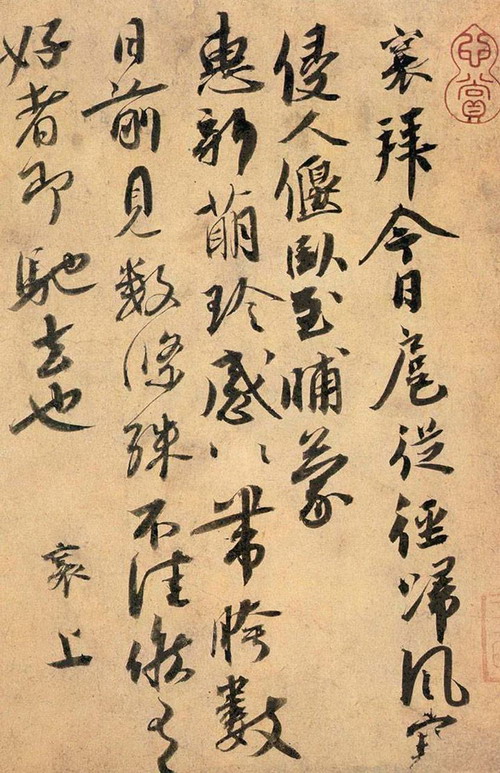 襄拜今日扈從徑歸風寒
侵人偃臥至晡蒙
惠新萌珍感〻帶胯數
日前見數條殊不佳候有
好者即馳去也
襄上